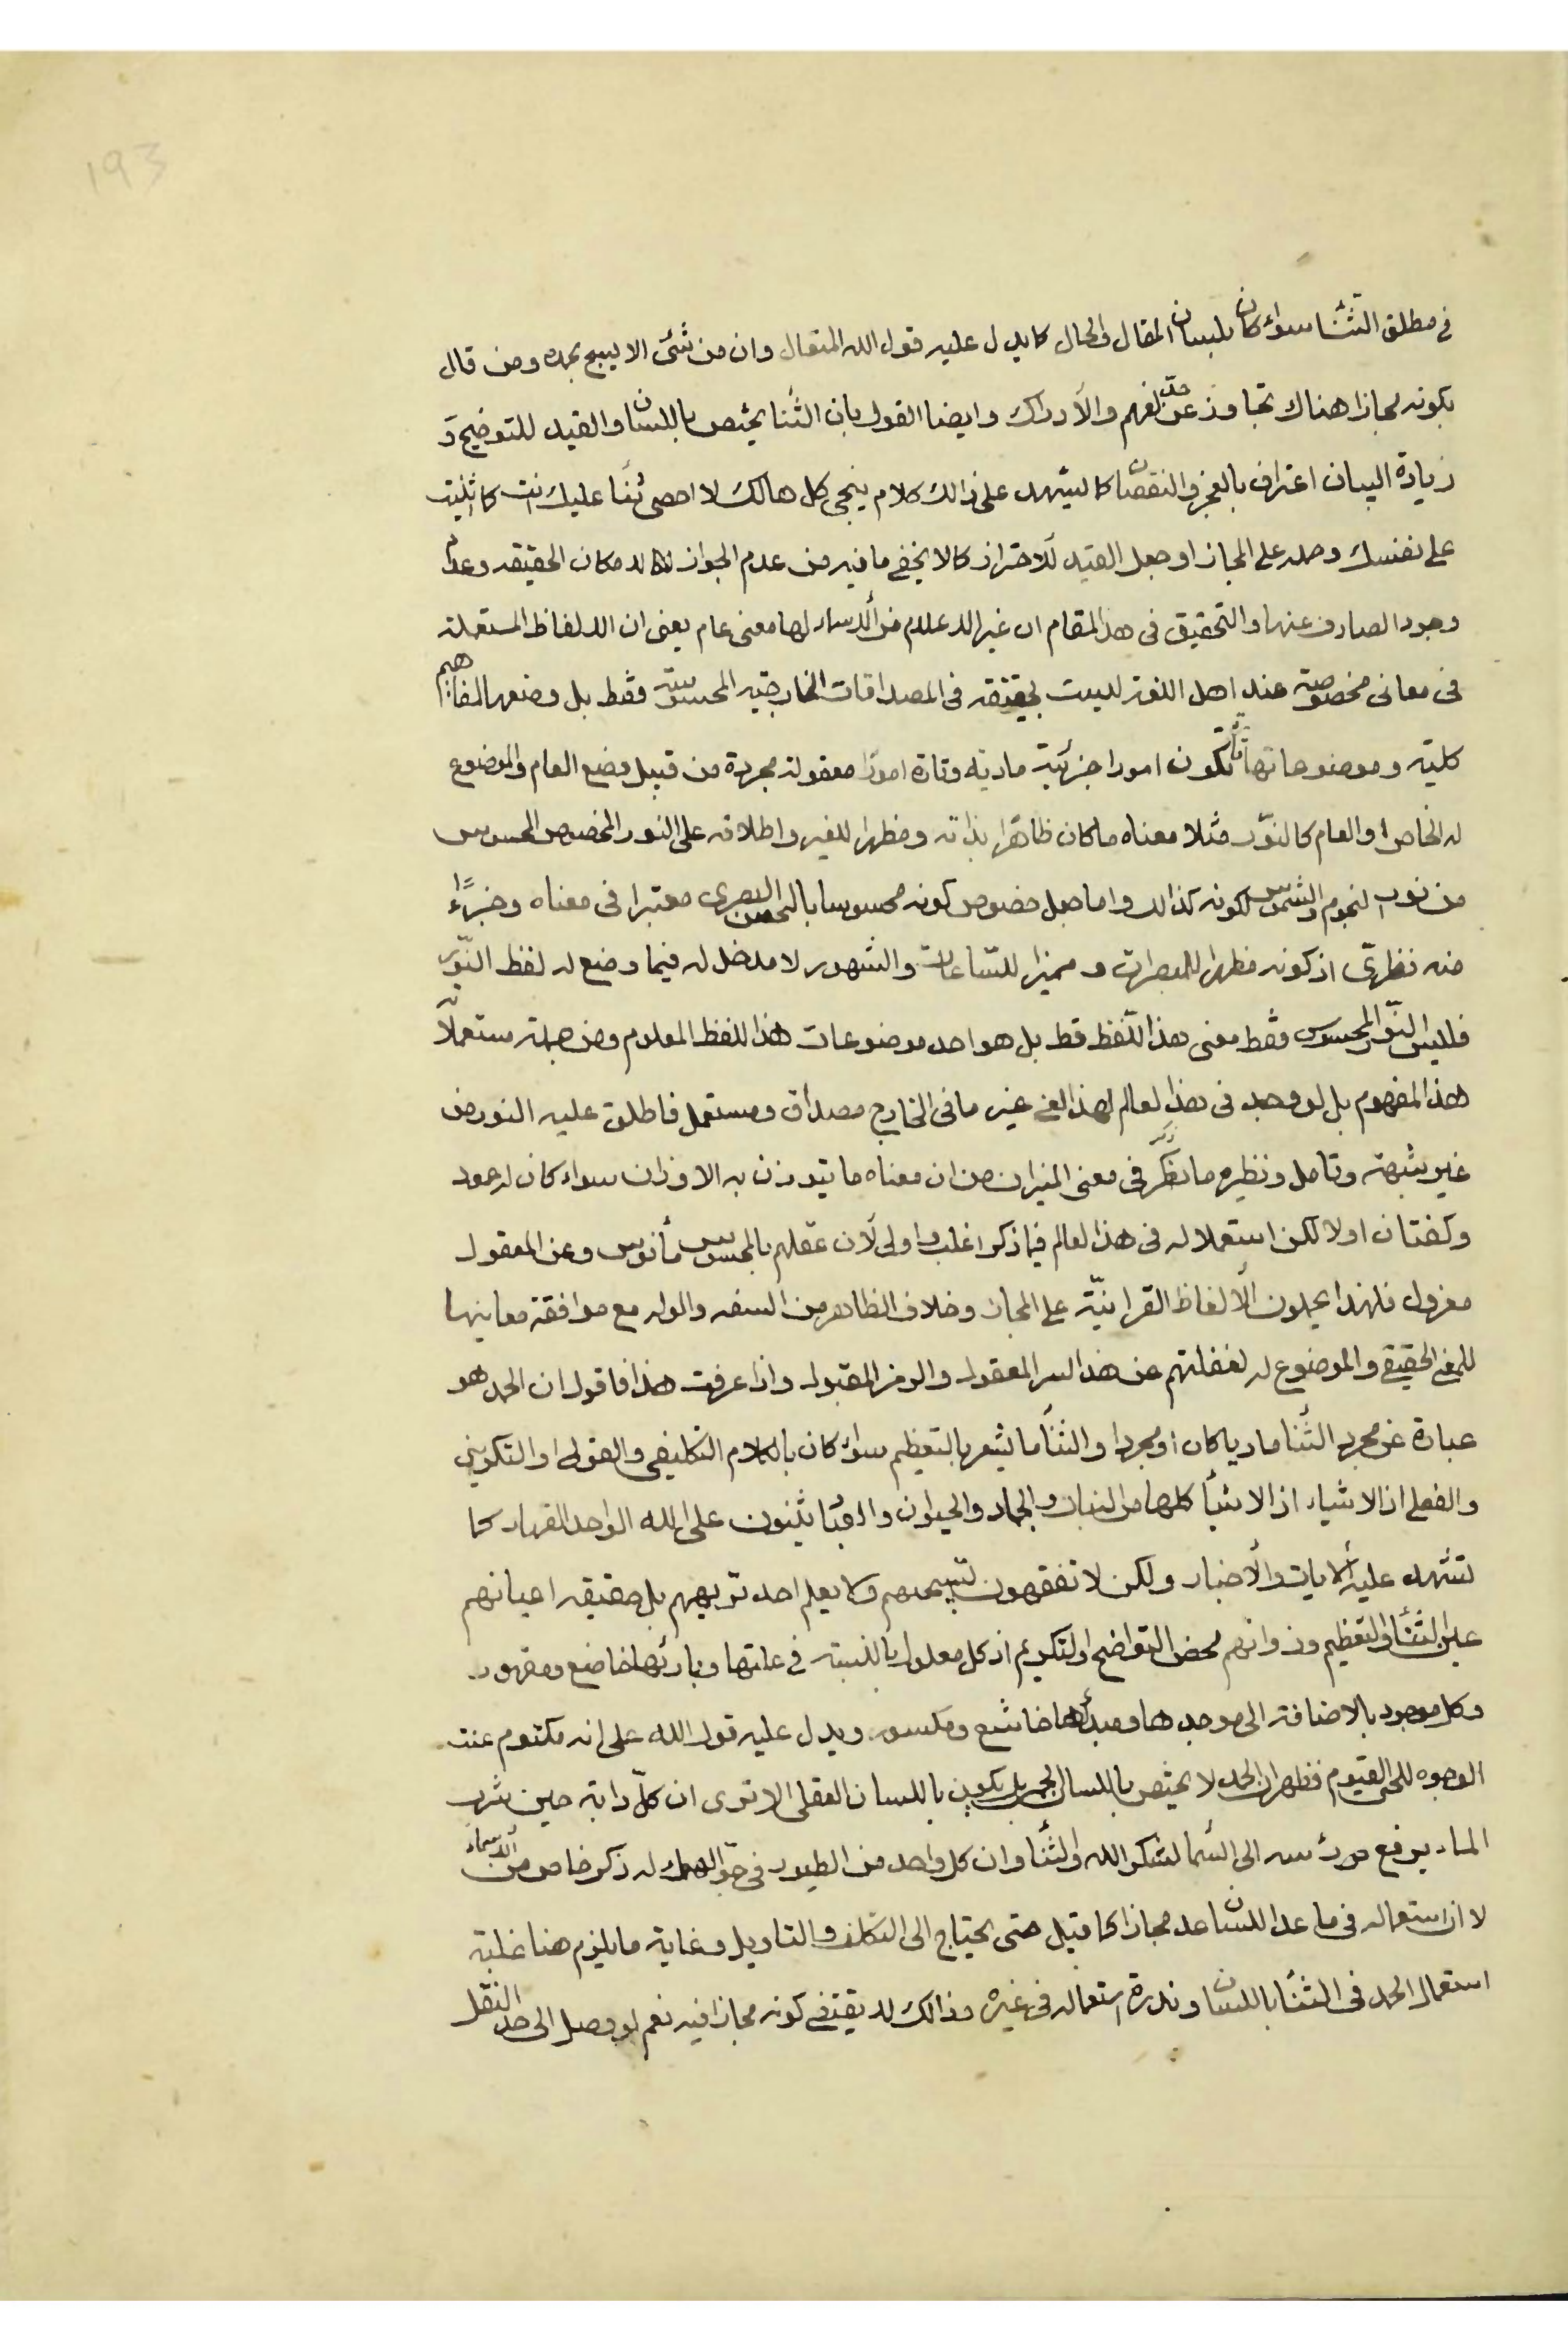 193
في مطلق الثنا سواء كان بلسان المقال والحال كما يدل عليه قول الله المتعال وان من شئ الا يسبح بحمده ومن قال
بكونه مجازا هناك تجاوز عن حد الفهم والادراك وايضا القول بان الثنا يختص باللسان والقيد للتوضيح و
زيادة البيان اعتراف بالعجز والنقصان كما يشهد على ذالك كلام ينجى كل هالك لا احصى ثنا عليك انت كما اثنيت
على نفسك وحمله على المجاز او جعل القيد للاحتراز كما لا يخفى ما فيه من عدم الجواز لامكان الحقيقه وعدم
وجود الصارف عنها والتحقيق فى هذا المقام ان غير الاعلام من الاسماء لها معنى عام يعنى ان الالفاظ المستعملة
فى معانى مخصوصة عند اهل اللغة ليست بحقيقة فى المصداقات الخارجيه المحسوسة فقط بل وضعها لمفاهيم
كلية وموضوعاتها تارة تكون امورا جزئية مادية وتارة امورا معقولة مجردة من قبيل وضع العام والموضوع
له الخاص او العام كالنور مثلا معناه ما كان ظاهرا بذاته ومظهرا للغير واطلاقه على النور المخصوص المحسوس
من نور النجوم والشموس لكونه كذالك واما جعل خصوص كونه محسوسا بالحس البصرى معتبرا فى معناه وجزءًا
منه فنظرى اذ كونه مظهرا للمبصرات ومميزا للساعات والشهور لا مدخل له فيما وضع له لفظ النور
فليس النور المحسوس فقط معنى هذا اللفظ قط بل هو احد موضوعات هذا اللفظ المعلوم ومن جملة مستعملات
هذا المفهوم بل لو وجد فى هذا العالم لهذا المعنى غير ما فى الخارج مصداق ومستعمل فاطلق عليه النور من
غير شبهة وتامل ونظيره ما ذكر فى معنى الميزان من ان معناه ما يتوزن به الاوزان سواء كان له عمود
وكفتان اولا لكن استعماله فى هذا العالم فيما ذكر اغلب واولى لان عقلهم بالمحسوس مأنوس وعن المعقول
معزول فلهذا يحملون الالفاظ القرانية على المجاز وخلاف الظاهر من السفه والوله مع موافقة معانيها
للمعنى الحقيقى والموضوع له لغفلتهم عن هذا السر المعقول والرمز المقبول واذا عرفت هذا فاقول ان الحمد هو
عبارة عن مجرد الثنا ماديا كان او مجردا والثنا ما يشعر بالتعظيم سواء كان بالكلام التكليفى والقولى او التكوينى
والفعلى اذ الاشياء اذ الاشيا كلها من النبات والجماد والحيوان والدقيا يثنون على الله الواحد القهار كما
تشهد عليه الايات والاخبار ولكن لا تفقهون تسبيحهم ولا يعلم احد توجيههم بل حقيقه اعيانهم
عين الثنا والتعظيم وذواتهم محض التواضع والتكريم اذ كل معلول بالنسبة فى علتها وبارئها خاضع ومقهور
وكل موجود بالاضافة الى موجدها ومبدأها خاشع ومكسور ويدل عليه قول الله على انه مكتوم عنت
الوجوه للحى القيوم فظهر ان الحمد لا يختص باللسان بل يكون باللسان العقلى الا ترى ان كل دابة حين شرب
الماء يرفع رأسه الى السما لشكر الله والثنا وان كل واحد من الطيور فى جو الهواء له ذكر خاص من الاسماء
لا ان استعماله فى ما عدا اللسان عد مجازا كما قيل حتى يحتاج الى التكلف والتاويل وغاية ما يلزم هنا غلبة
استعمال الحمد فى الثنا باللسان وندرة استعماله فى غيره وذالك لا يقتضى كونه مجازا فيه نعم لو وصل الى حد النقل